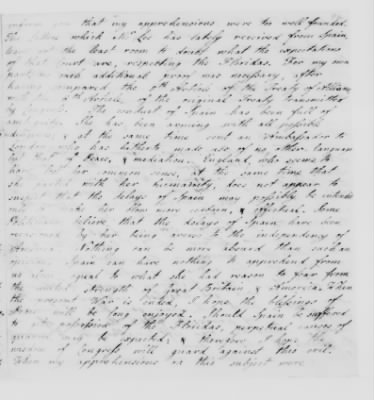 inform you that my apprehensions were too well founded.
The letters which Mr Lee has lately received from Spain
leave not the least room to doubt what the expectations
of that Court are, respecting the Floridas. For my own
part, no such additional proof was necessary, after
having compared the 6th Article of the Treaty of Alliance
with the Article of the original Treaty transmitted
by Congress. The conduct of Spain has been full of
ambiguity. She has been arming with all possible
& at the same time sent an Ambassador to
London who has hitherto made use of no other language
but that of Peace, & mediation. England, who seems to
have lost her common sense, at the same time that
she parted with her humanity, does not appear to
suspect that the delays of Spain may possibly be intended
only to make her blow more certain & effectual. Some
Politicians believe that the delays of Spain have been
By her being averse to the independency of
America. Nothing can be more absurd than such an
opinion. Spain can have nothing to apprehend from
us alone equal to what she had reason to fear from
the united strength of Great Britain & America. When
the present War is ended, I hope the blessings of
Peace will be long enjoyed. Should Spain be suffered
to get possession of the Floridas, perpetual causes of
quarrel may be expected, & therefore I hope the
wisdom of Congress will guard against this evil.
When my apprehensions on this subject were